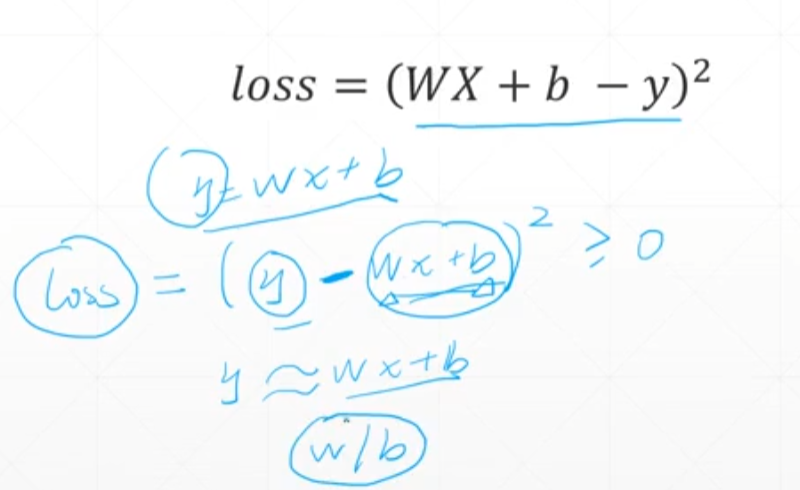 loss = (WX + b − y)²
y = wx + b
loss = (y - wx + b)² ≥ 0
y ≈ wx + b
w / b